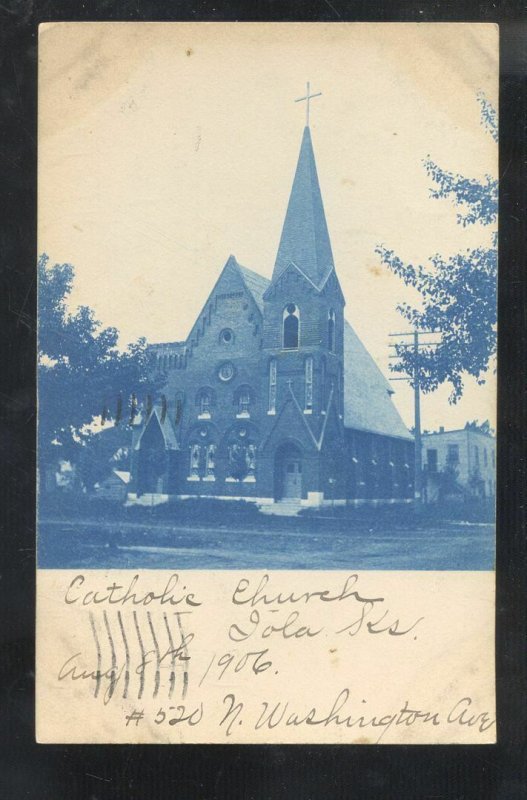 Catholic Church
Iola Ks.
Aug 8th 1906.
# 520 N. Washington Ave